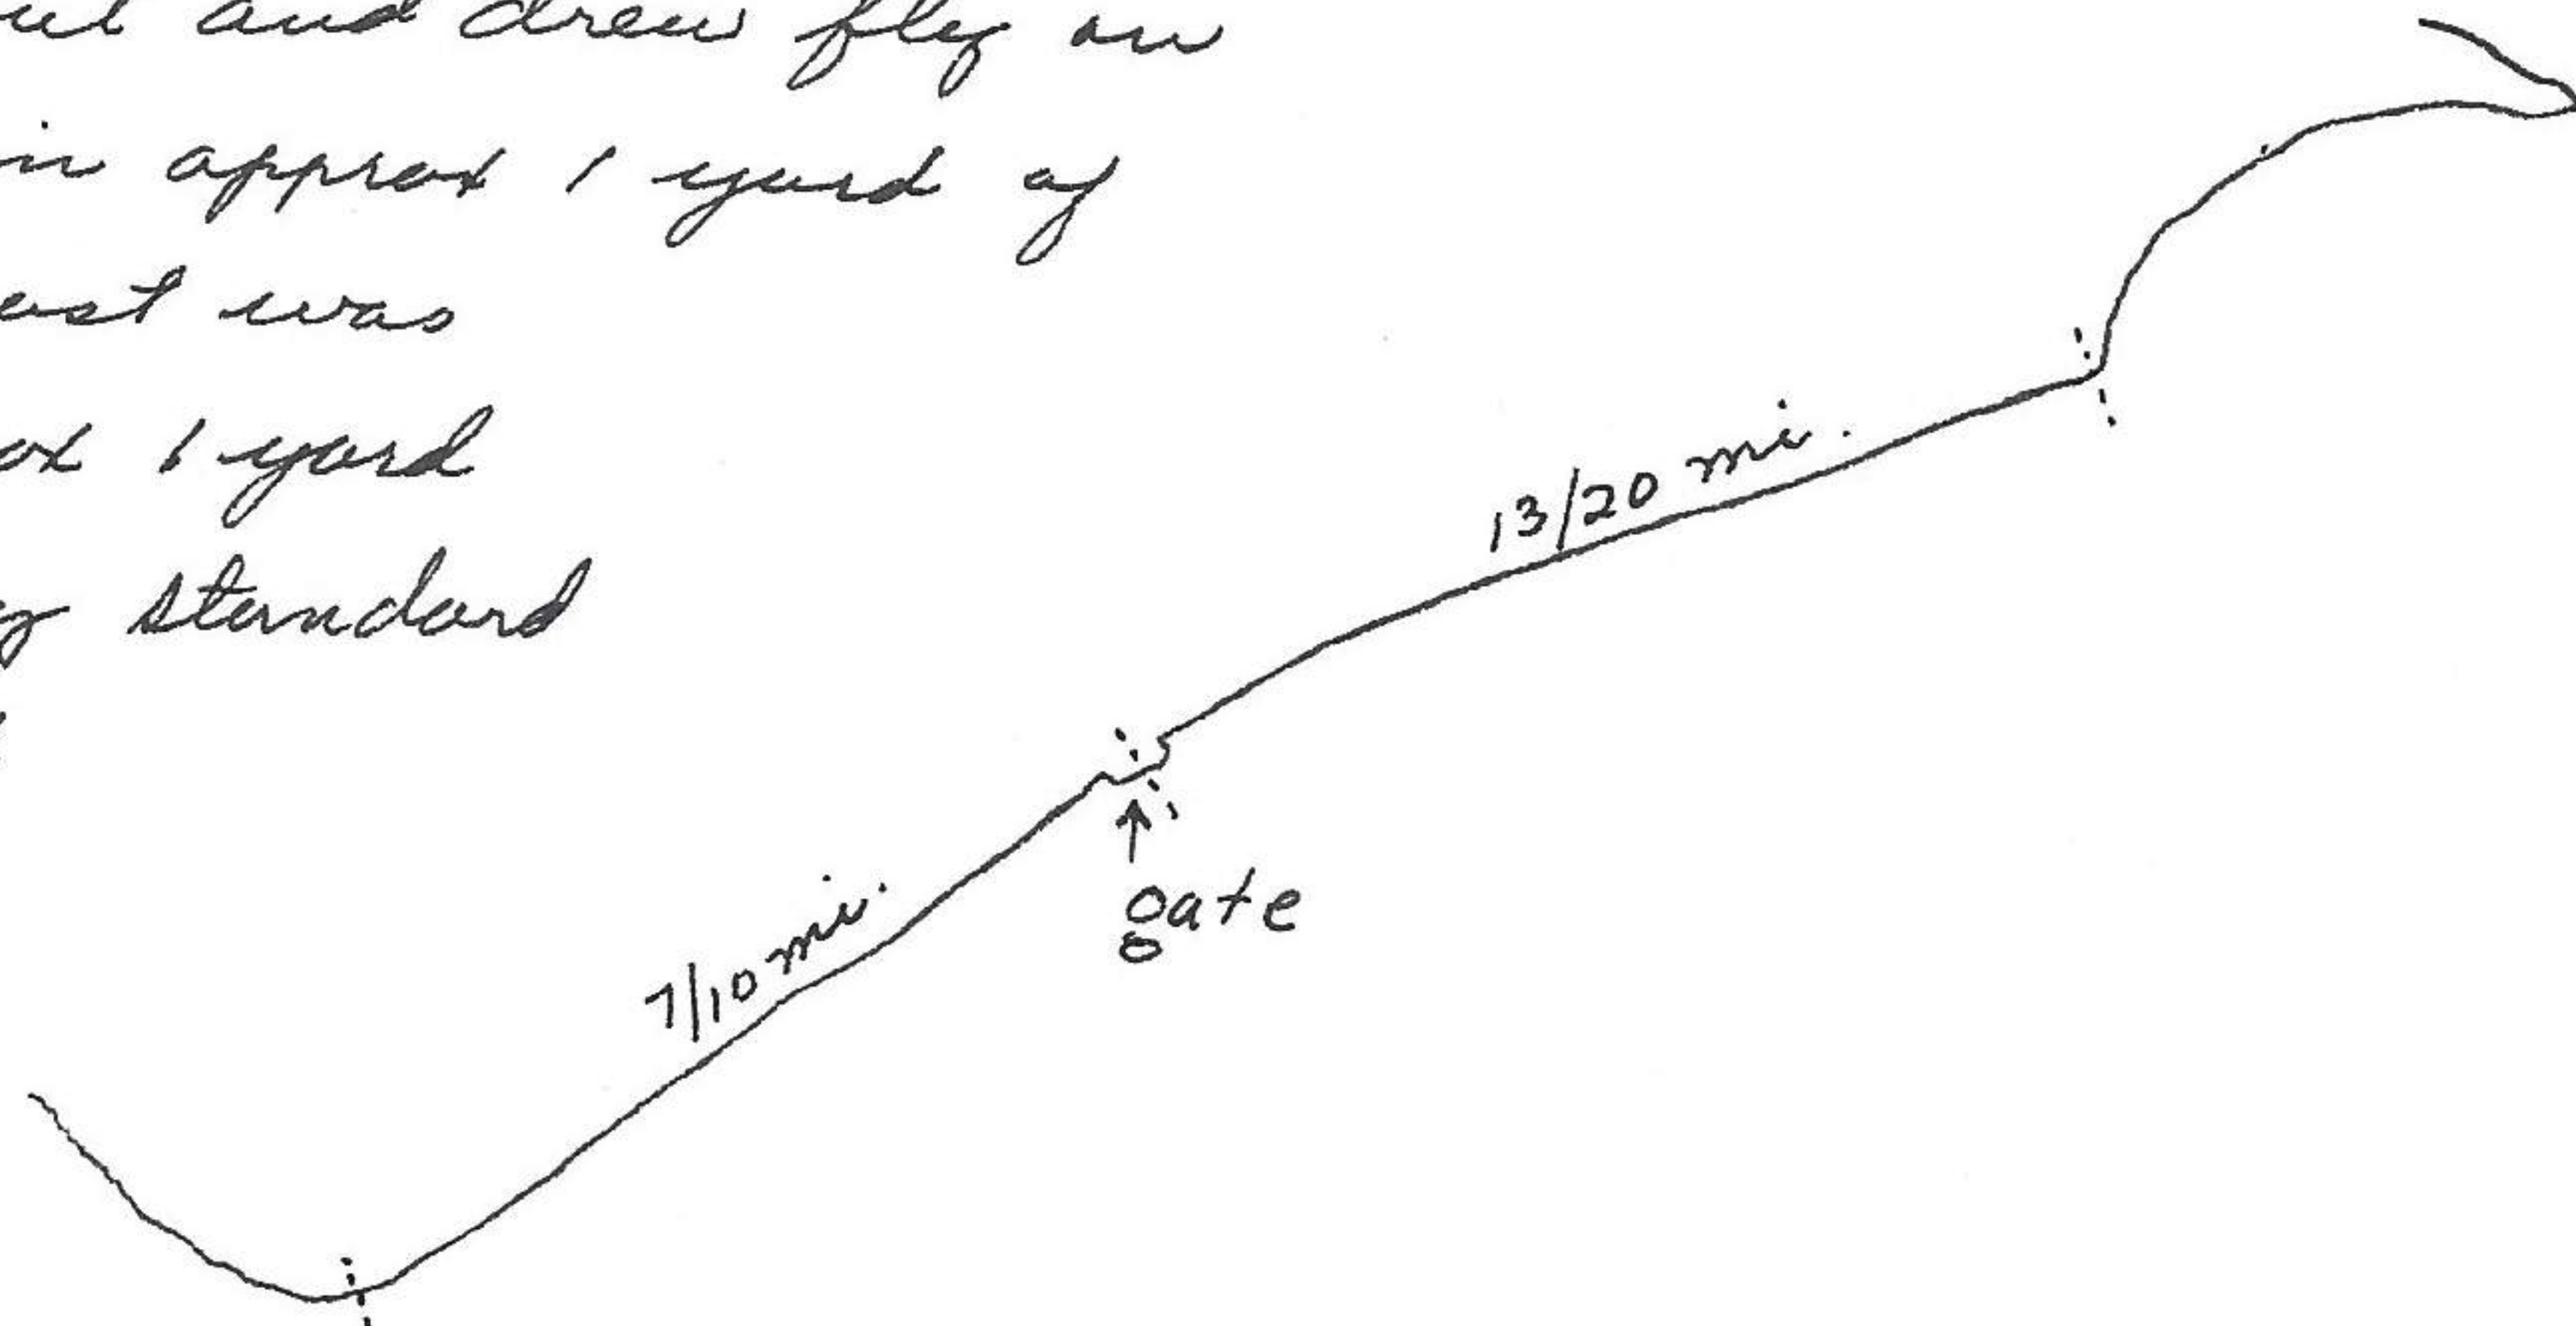 and drew flag on
in approx 1 yard of
was
1 yard
standard
13/20 mi.
gate
7/10 mi.